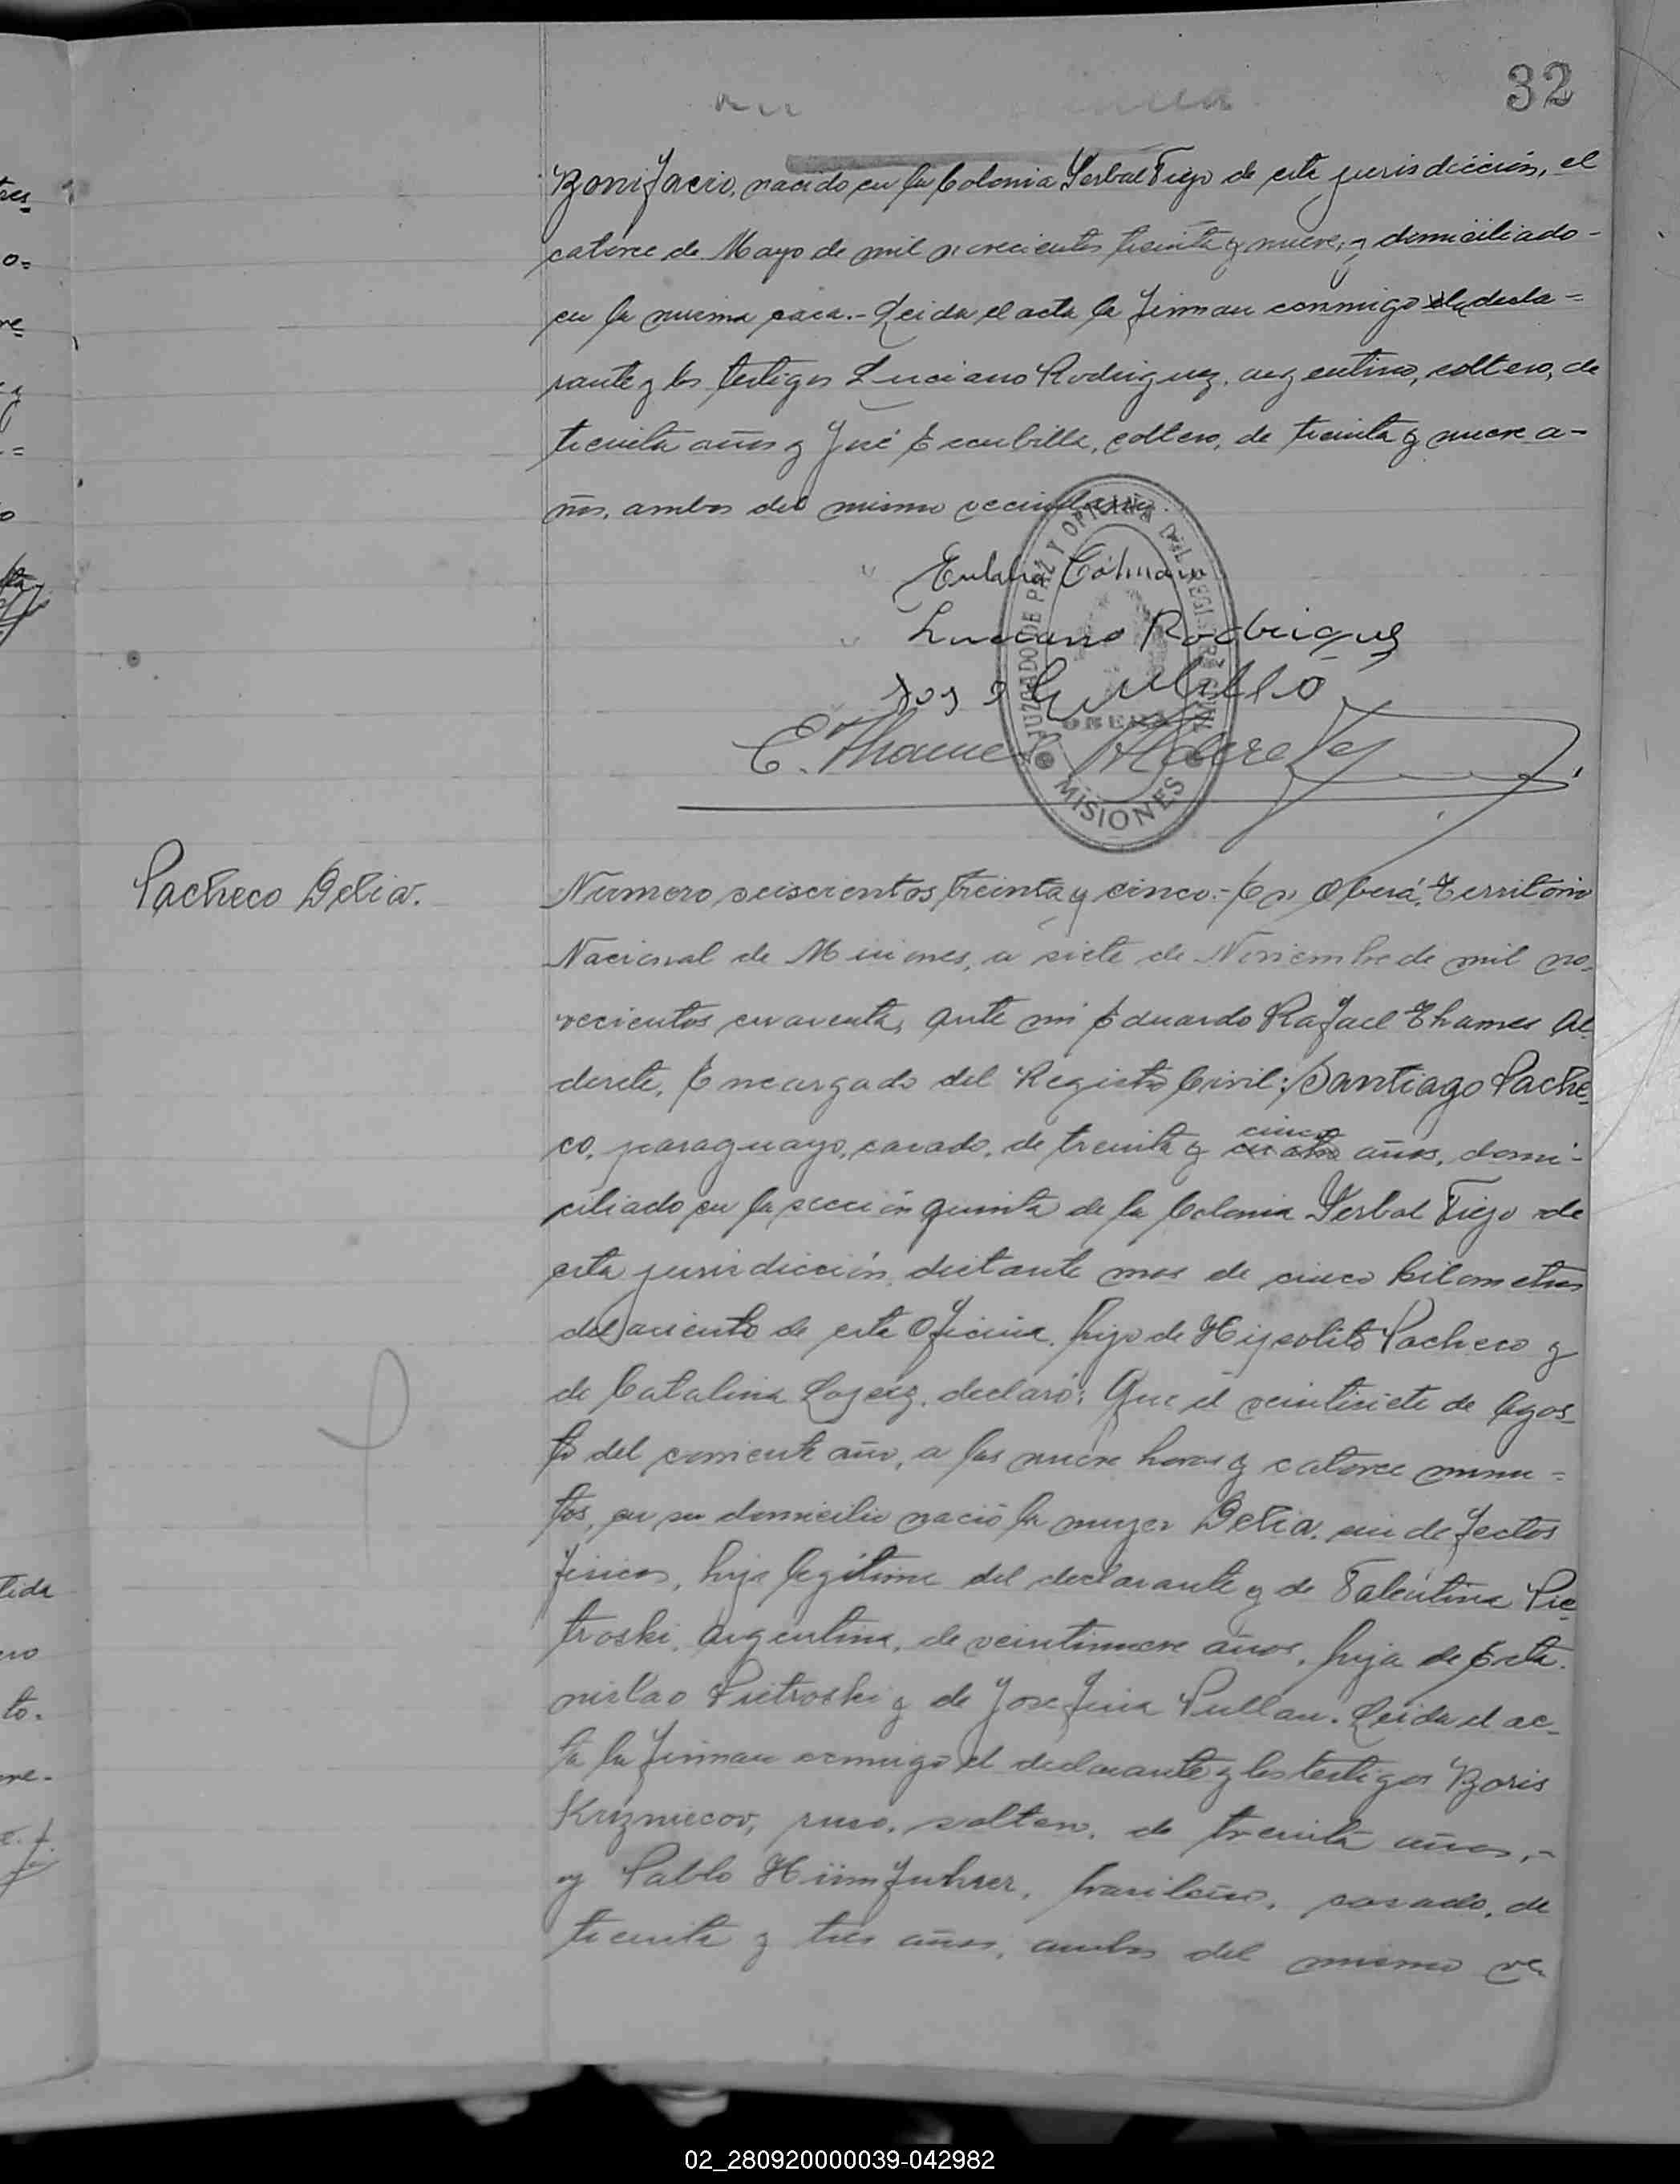 32
Bonifacio, nacido en la Colonia Yerbal Viejo de esta jurisdicción, el
catorce de Mayo de mil novecientos treinta y nueve, y domiciliado-
en la misma casa.- Leida el acta la firman conmigo decla=
rante y los testigos Luciano Rodriguez, argentino, soltero, de
treinta años y José Escubilla, soltero, de treinta y nueve a-
ños, ambos del mismo vecindario.
Luciano Rodriguez
JUZGADO DE PAZ Y OFICINA DEL REGISTRO CIVIL
OBERÁ
MISIONES
E. Thames Alderete
Pacheco Delia.
Número seiscientos treinta y cinco.- En Oberá, Territorio
Nacional de Misiones, a siete de Noviembre de mil no-
vecientos cuarenta, ante mi Eduardo Rafael Thames Al-
derete, Encargado del Registro Civil: Santiago Pache-
co, paraguayo, casado, de treinta y cinco años, domi-
ciliado en la sección quinta de la Colonia Yerbal Viejo de
esta jurisdicción, distante mas de cinco kilometros
del asiento de esta Oficina, hijo de Hipolito Pacheco y
de Catalina Lopez, declaró: Que el veintisiete de Agos-
to del corriente año, a las nueve horas y catorce minu=
tos, en su domicilio nació la mujer Delia, sin defectos
fisicos, hija legitima del declarante y de Valentina Pie
troski, argentina, de veintinueve años, hija de Esta-
nislao Pietroski y de Josefina Pullan. Leida el ac-
ta la firman conmigo el declarante y los testigos Boris
Krizniecov, ruso, soltero, de treinta años,-
y Pablo Hünnfuhrer, brasileño, casado, de
treinta y tres años, ambos del mismo ve-
02_280920000039-042982